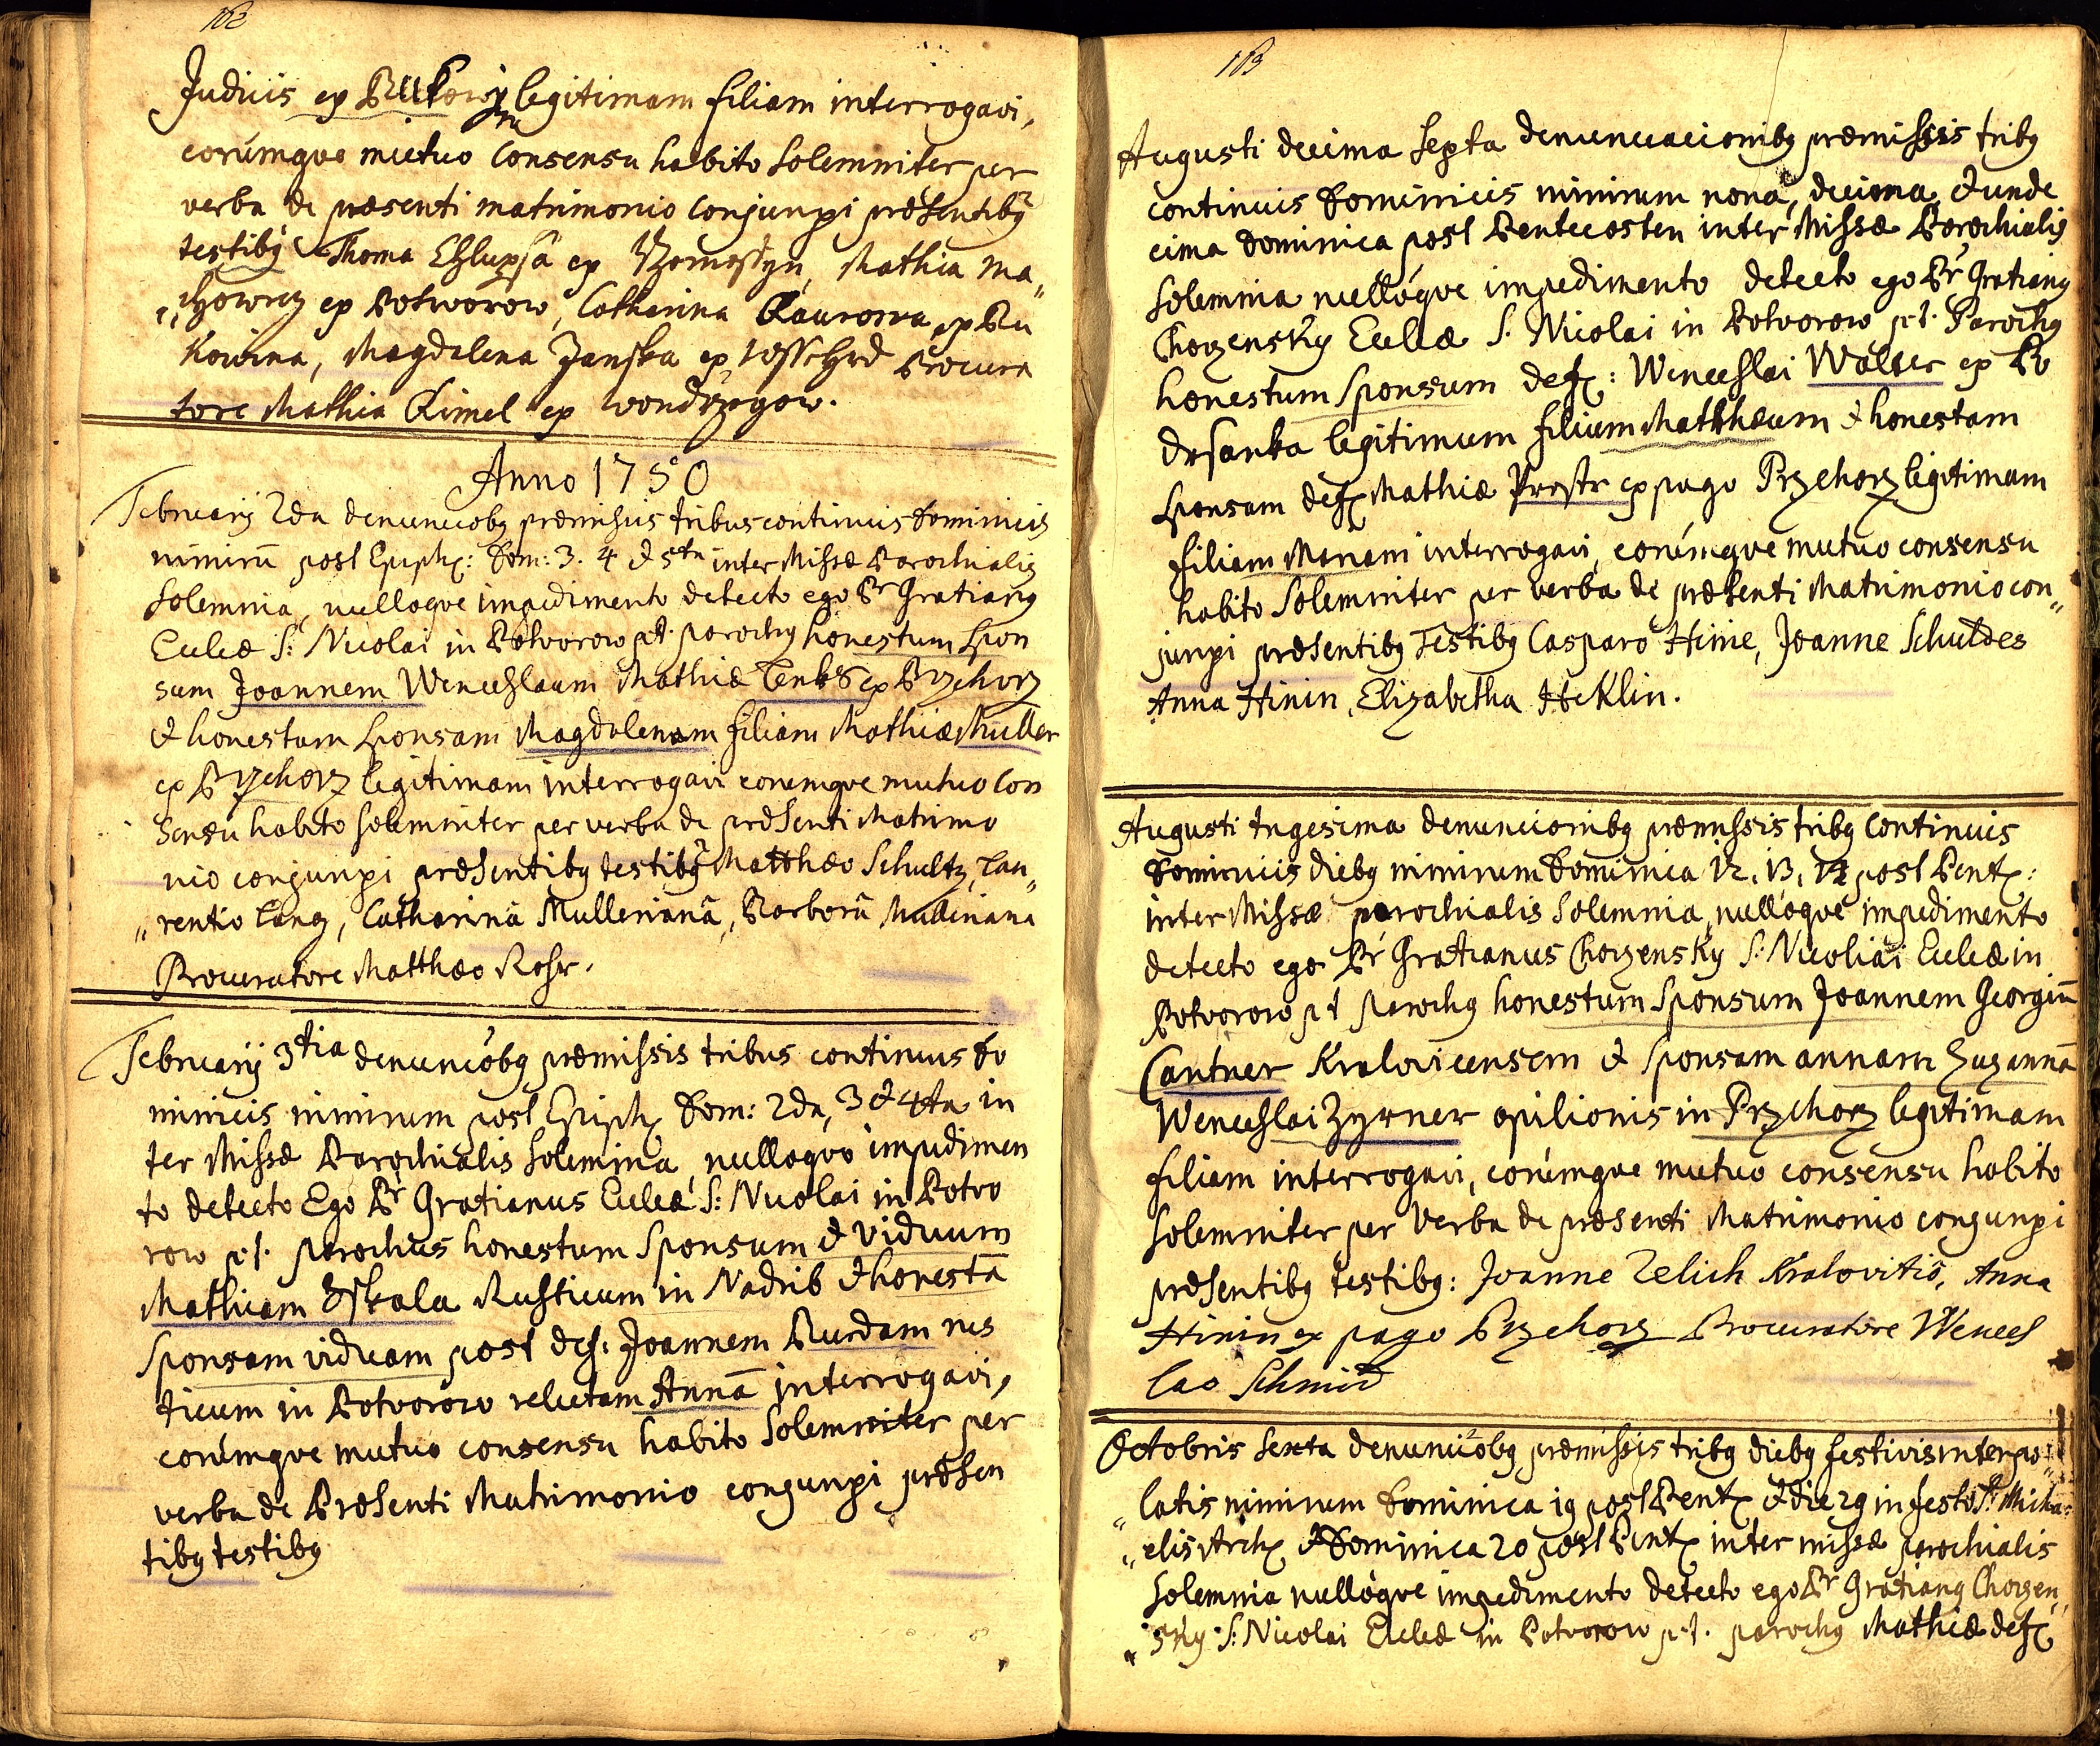 162
Judicis ex Bukowÿna legitimam filiam interrogavi,
eorúmqve mutuo Consensu habito Solemniter per
verba de præsenti matrimonio conjunxi præsentibq
testibq Thoma ex Mathia Ma„
„ ex Potworow, Catharina ex Bu
kowina, Magdalena Janska ex Procura
tore Mathia Kimel ex
Anno 1750
Februarij 2da denuncōbq præmissis tribus continuis Dominicis
nimirū post Epiph: Dom: 3. 4 & 5ta inter Missæ Parochialis
Solemnia, nulloqve impedimento detecto ego Pr Gratianq
Eccleæ S: Nicolai in Potvorow pt. parochq honestum Spon
sum Joannem Wenceslaum Mathiæ ex Przehorz
& honestam Sponsam Magdalenam filiam Mathiæ Müller
ex Przehorz legitimam interrogavi eorumqve mutuo Con
sensu habito solemniter per verba de præsenti Matrimo
nio conjunxi præsentibq testibq Matthæo Schultz, Lau„
„rentio Lang, Catharinâ Mullerianâ, Barborâ Mulleriana
Procuratore Matthæo Rosr.
Februarij 3tia denuncōbq præmissis tribus continuis Do
minicis nimirum post Epiph Dom: 2da, 3 & 4ta in
ter Missæ Parochialis Solemnia, nulloqvo impedimen
to detecto Ego Pr Gratianus Eccleæ S: Nicolai in Potvo
row p:t. parochus honestum Sponsum & viduum
Mathiam Skala Rusticum in Nadrib & honestā
Sponsam viduam post def. Joannem Burdam rus
ticum in Potvorow relictam Annā interrogavi,
eorúmqve mutuo consensu habito Solemniter per
verba de Præsenti Matrimonio conjunxi præsen
tibq testibq
163
Augusti decima sexta denunciacionibq præmissis tribq
continuis Dominicis nimirum nona, decima, & unde
cima Dominica post Pentecosten inter Missæ Parochialis
Solemnia nullóqve impedimento detecto ego Pr Gratianq
Chorzensky Eccleæ S: Nicolai in Potvorow p:t. Parochq
honestum Sponsum def: Wenceslai Walter ex Po
drsanka legitimum filium Matthæum & honestam
Sponsam def Mathiæ Prostr ex pago Przehorz legitimam
filiam Mariam interrogavi, eorúmqve mutuo consensu
habito Solemniter per verba de præsenti Matrimonio con„
junxi præsentibq Testibq Casparo Hinie, Joanne Schuldes
Anna Hinin, Elizabetha Heklin.
Augusti trigesima denuncionibq præmissis tribq Continuis
Dominicis diebq nimirum Dominica 12, 13, 14 post Pent:
inter Missæ parochialis Solemnia, nullóqve impedimento
detecto ego Pr Gratianus Chorzensky S: Nicoliai Eccleæ in
Potvorow p t Parochq honestum Sponsum Joannem Georgiū
Cantner Kralovicensem & Sponsam annam Zuzannā
Wenceslai Zyrner opilionis in Przehorz legitimam
filiam interrogavi, eorúmqve mutuo consensu habito
Solemniter per Verba de præsenti Matrimonio conjunxi
præsentibq testibq: Joanne Zelich Kralovitio, Anna
Hinin ex pago Przehorz Procuratore Wences
lao Schmid
Octobris sexta denunciōbq præmissis tribq diebq festivis interpo„
„latis nimirum Dominica 19 post Pent & die 29 in festo S: Micha„
„elis Arch & Dominica 20 post Pent inter missæ parochialis
Solemnia nullóqve impedimento detecto ego Pr Gratianq Chorzen„
„sky S: Nicolai Eccleæ in Potvorow p:t. parochq Mathiæ def